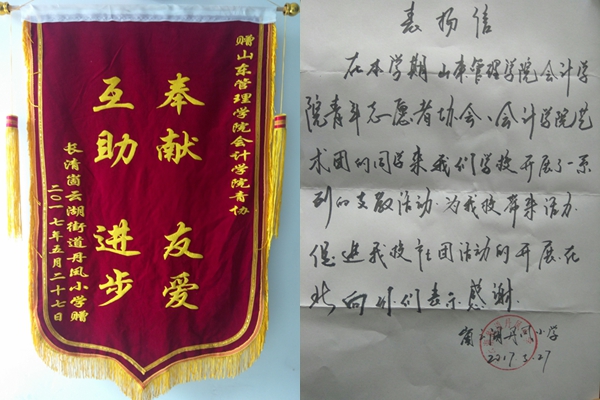 赠山东管理学院会计学院青协
奉献 友爱
互助 进步
长清崮云湖街道丹凤小学赠
二〇一七年五月二十七日
表扬信
在本学期山东管理学院会计学
院青年志愿者协会、会计学院艺
术团的同学来我们学校开展了一系
列的支教活动.为我校带来活力.
促进我校社团活动的开展.在
此向你们表示感谢.
崮云湖丹凤小学
2017.5.27